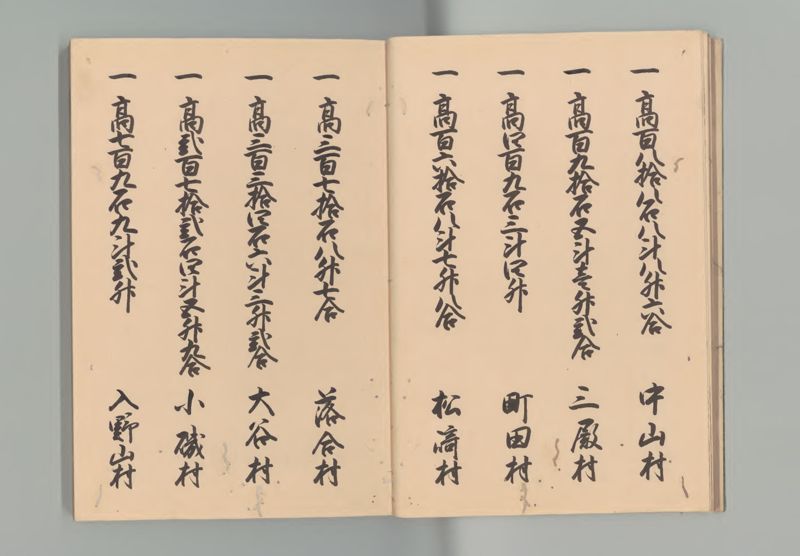 一 高百八拾八石八斗八升六合 中山村
一 高百九拾石五斗壱升弐合 三殿村
一 高四百九石三斗四升 町田村
一 高百六拾石八斗七升八合 松崎村
一 高三百七拾石八升七合 落合村
一 高三百三拾四石六斗三升弐合 大谷村
一 高弐百七拾弐石四斗五升九合 小磯村
一 高七百九石九斗弐升 入野山村